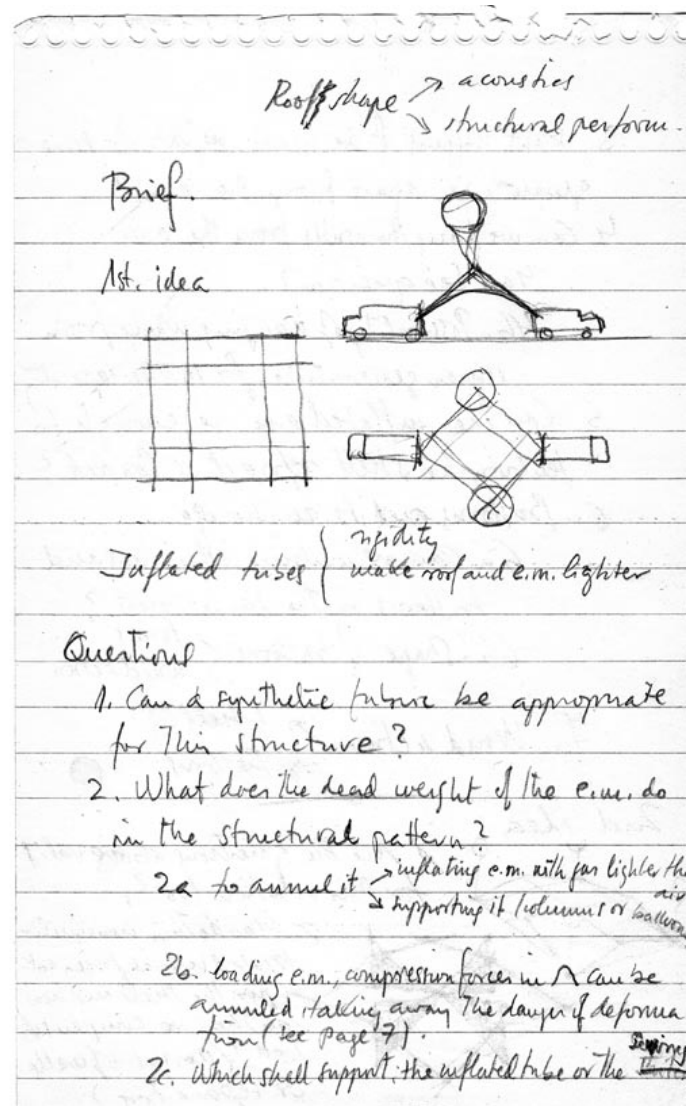 Roof shape ↗ acoustics
↘ structural perform.
Brief.
1st. idea
Inflated tubes { rigidity
make roof and e.m. lighter
Questions
1. Can a synthetic fabric be appropriate
for this structure?
2. What does the dead weight of the e.m. do
in the structural pattern?
2a to annul it ↗ inflating e.m. with gas lighter than
air
↘ supporting it /columns or balloons
2b. loading e.m., compression forces in Λ can be
annuled, taking away the danger of deforma
tion (see page 7).
2c. Which shall support, the inflated tube or the